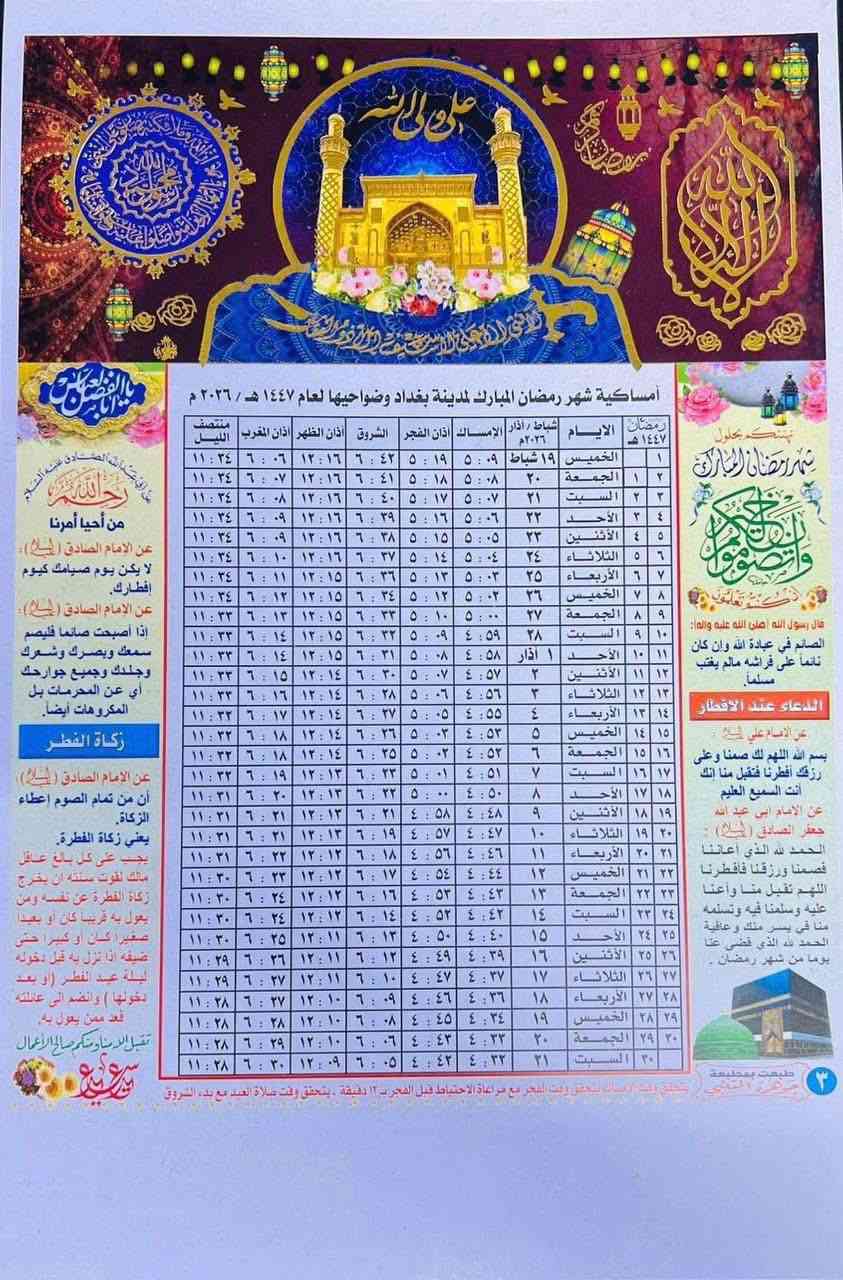 علي ولي الله
لا فتى الا علي لا سيف الا ذو الفقار
يا ابا الفضل العباس
أمساكية شهر رمضان المبارك لمدينة بغداد وضواحيها لعام ١٤٤٧ هـ / ٢٠٢٦ م
رمضان ١٤٤٧ هـ الايـام شباط / أذار ٢٠٢٦م الإمسـاك أذان الفجر الشروق أذان الظهر أذان المغرب منتصف الليل
١ الخميس ١٩ شباط ٥:٠٩ ٥:١٩ ٦:٤٢ ١٢:١٦ ٦:٠٦ ١١:٣٤
٢ ١ الجمعة ٢٠ ٥:٠٨ ٥:١٨ ٦:٤١ ١٢:١٦ ٦:٠٧ ١١:٣٤
٣ ٢ السبت ٢١ ٥:٠٧ ٥:١٧ ٦:٤٠ ١٢:١٦ ٦:٠٨ ١١:٣٤
٤ ٣ الأحد ٢٢ ٥:٠٦ ٥:١٦ ٦:٣٩ ١٢:١٦ ٦:٠٩ ١١:٣٤
٥ ٤ الأثنين ٢٣ ٥:٠٥ ٥:١٥ ٦:٣٨ ١٢:١٦ ٦:٠٩ ١١:٣٤
٦ ٥ الثلاثاء ٢٤ ٥:٠٤ ٥:١٤ ٦:٣٧ ١٢:١٥ ٦:١٠ ١١:٣٤
٧ ٦ الأربعاء ٢٥ ٥:٠٣ ٥:١٣ ٦:٣٦ ١٢:١٥ ٦:١١ ١١:٣٤
٨ ٧ الخميس ٢٦ ٥:٠٢ ٥:١٢ ٦:٣٤ ١٢:١٥ ٦:١٢ ١١:٣٤
٩ ٨ الجمعة ٢٧ ٥:٠٠ ٥:١٠ ٦:٣٣ ١٢:١٥ ٦:١٣ ١١:٣٣
١٠ ٩ السبت ٢٨ ٤:٥٩ ٥:٠٩ ٦:٣٢ ١٢:١٥ ٦:١٤ ١١:٣٣
١١ ١٠ الأحد ١ أذار ٤:٥٨ ٥:٠٨ ٦:٣١ ١٢:١٥ ٦:١٤ ١١:٣٣
١٢ ١١ الأثنين ٢ ٤:٥٧ ٥:٠٧ ٦:٣٠ ١٢:١٤ ٦:١٥ ١١:٣٣
١٣ ١٢ الثلاثاء ٣ ٤:٥٦ ٥:٠٦ ٦:٢٨ ١٢:١٤ ٦:١٦ ١١:٣٣
١٤ ١٣ الأربعاء ٤ ٤:٥٥ ٥:٠٥ ٦:٢٧ ١٢:١٤ ٦:١٧ ١١:٣٢
١٥ ١٤ الخميس ٥ ٤:٥٣ ٥:٠٣ ٦:٢٦ ١٢:١٤ ٦:١٨ ١١:٣٢
١٦ ١٥ الجمعة ٦ ٤:٥٢ ٥:٠٢ ٦:٢٥ ١٢:١٤ ٦:١٨ ١١:٣٢
١٧ ١٦ السبت ٧ ٤:٥١ ٥:٠١ ٦:٢٣ ١٢:١٣ ٦:١٩ ١١:٣٢
١٨ ١٧ الأحد ٨ ٤:٥٠ ٥:٠٠ ٦:٢٢ ١٢:١٣ ٦:٢٠ ١١:٣١
١٩ ١٨ الأثنين ٩ ٤:٤٨ ٤:٥٨ ٦:٢١ ١٢:١٣ ٦:٢١ ١١:٣١
٢٠ ١٩ الثلاثاء ١٠ ٤:٤٧ ٤:٥٧ ٦:١٩ ١٢:١٣ ٦:٢١ ١١:٣١
٢١ ٢٠ الأربعاء ١١ ٤:٤٦ ٤:٥٦ ٦:١٨ ١٢:١٢ ٦:٢٢ ١١:٣١
٢٢ ٢١ الخميس ١٢ ٤:٤٤ ٤:٥٤ ٦:١٧ ١٢:١٢ ٦:٢٣ ١١:٣٠
٢٣ ٢٢ الجمعة ١٣ ٤:٤٣ ٤:٥٣ ٦:١٦ ١٢:١٢ ٦:٢٤ ١١:٣٠
٢٤ ٢٣ السبت ١٤ ٤:٤٢ ٤:٥٢ ٦:١٤ ١٢:١٢ ٦:٢٤ ١١:٣٠
٢٥ ٢٤ الأحد ١٥ ٤:٤٠ ٤:٥٠ ٦:١٣ ١٢:١١ ٦:٢٥ ١١:٣٠
٢٦ ٢٥ الأثنين ١٦ ٤:٣٩ ٤:٤٩ ٦:١٢ ١٢:١١ ٦:٢٦ ١١:٢٩
٢٧ ٢٦ الثلاثاء ١٧ ٤:٣٧ ٤:٤٧ ٦:١٠ ١٢:١١ ٦:٢٧ ١١:٢٩
٢٨ ٢٧ الأربعاء ١٨ ٤:٣٦ ٤:٤٦ ٦:٠٩ ١٢:١٠ ٦:٢٧ ١١:٢٨
٢٩ ٢٨ الخميس ١٩ ٤:٣٤ ٤:٤٥ ٦:٠٨ ١٢:١٠ ٦:٢٨ ١١:٢٨
٣٠ ٢٩ الجمعة ٢٠ ٤:٣٣ ٤:٤٣ ٦:٠٦ ١٢:١٠ ٦:٢٩ ١١:٢٨
٣٠ السبت ٢١ ٤:٣٢ ٤:٤٢ ٦:٠٥ ١٢:٠٩ ٦:٣٠ ١١:٢٨
يتحقق وقت الإمساك بتحقق وقت الفجر مع مراعاة الاحتياط قبل الفجر بـ ١٢ دقيقة ، يتحقق وقت صلاة العيد مع بدء الشروق
نهنئكم بحلول
شهر رمضان المبارك
وأن تصوموا خير لكم
إن كنتم تعلمون
قال رسول الله (صلى الله عليه وآله):
الصائم في عبادة الله وان كان
نائماً على فراشه مالم يغتب
مسلماً.
الدعاء عند الافطار
عن الامام علي
بسم الله اللهم لك صمنا وعلى
رزقك أفطرنا فتقبل منا انك
أنت السميع العليم
عن الامام ابي عبد الله
جعفر الصادق :
الحمد لله الذي أعاننا
فصمنا ورزقنا فأفطرنا
اللهم تقبل منا وأعنا
عليه وسلمنا فيه وتسلمه
منا في يسر منك وعافية
الحمد لله الذي قضى عنا
يوما من شهر رمضان .
طبعت بمطبعة
٣
عن ابي عبد الله الصادق عليه السلام
رحم الله
من أحيا أمرنا
عن الامام الصادق :
لا يكن يوم صيامك كيوم
إفطارك.
عن الامام الصادق :
إذا أصبحت صائما فليصم
سمعك وبصرك وشعرك
وجلدك وجميع جوارحك
أي عن المحرمات بل
المكروهات أيضاً.
زكاة الفطر
عن الامام الصادق :
أن من تمام الصوم إعطاء
الزكاة.
يعني زكاة الفطرة.
يجب على كل بالغ عاقل
مالك لقوت سنته ان يخرج
زكاة الفطرة عن نفسه ومن
يعول به قريبا كان أو بعيدا
صغيرا كان أو كبيرا حتى
ضيفه اذا نزل به قبل دخوله
ليلة عيد الفطر (أو بعد
دخولها ) وانضم الى عائلته
فعد ممن يعول به.
تقبل الله منا ومنكم صالح الأعمال
عيد سعيد